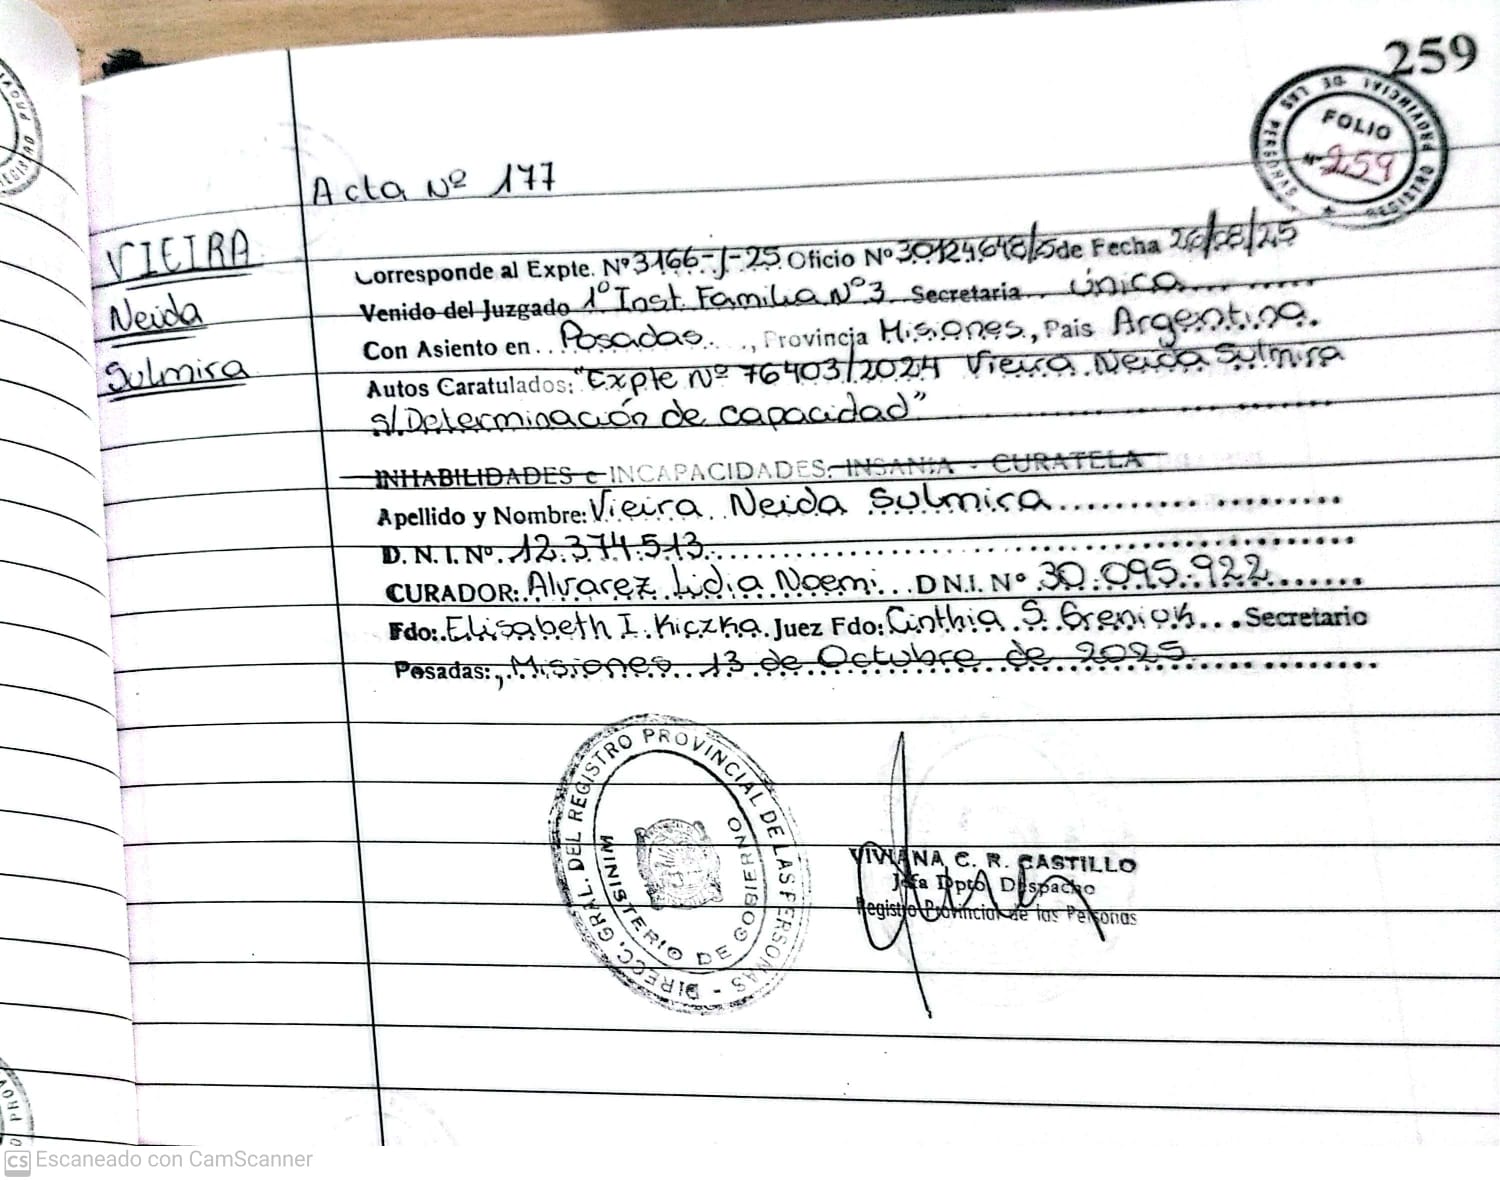 259
REGISTRO PROVINCIAL DE LAS PERSONAS
FOLIO
Nº 259
Acta Nº 177
VIEIRA
Neida
Sulmira
Corresponde al Expte. Nº 3166-J-25 Oficio Nº 30124648/25 de Fecha 26/08/25
Venido del Juzgado 1º Inst. Familia Nº3 Secretaria Única
Con Asiento en Posadas, Provincia Misiones, Pais Argentina.
Autos Caratulados: "Expte Nº 76403/2024 Vieira Neida Sulmira
s/Determinación de capacidad"
INHABILIDADES e INCAPACIDADES: INSANIA - CURATELA
Apellido y Nombre: Vieira Neida Sulmira
D. N. I. Nº. 12.374.513
CURADOR: Alvarez Lidia Noemi D N.I. Nº 30.095.922
Fdo: Elisabeth I. Kiczka. Juez Fdo: Cinthia S. Greniuk Secretario
Posadas:, Misiones 13 de Octubre de 2025
DIRECC. GRAL. DEL REGISTRO PROVINCIAL DE LAS PERSONAS -
MINISTERIO DE GOBIERNO
VIVIANA C. R. CASTILLO
Jefa Dpto Despacho
Registro Provincial de las Personas
CS Escaneado con CamScanner